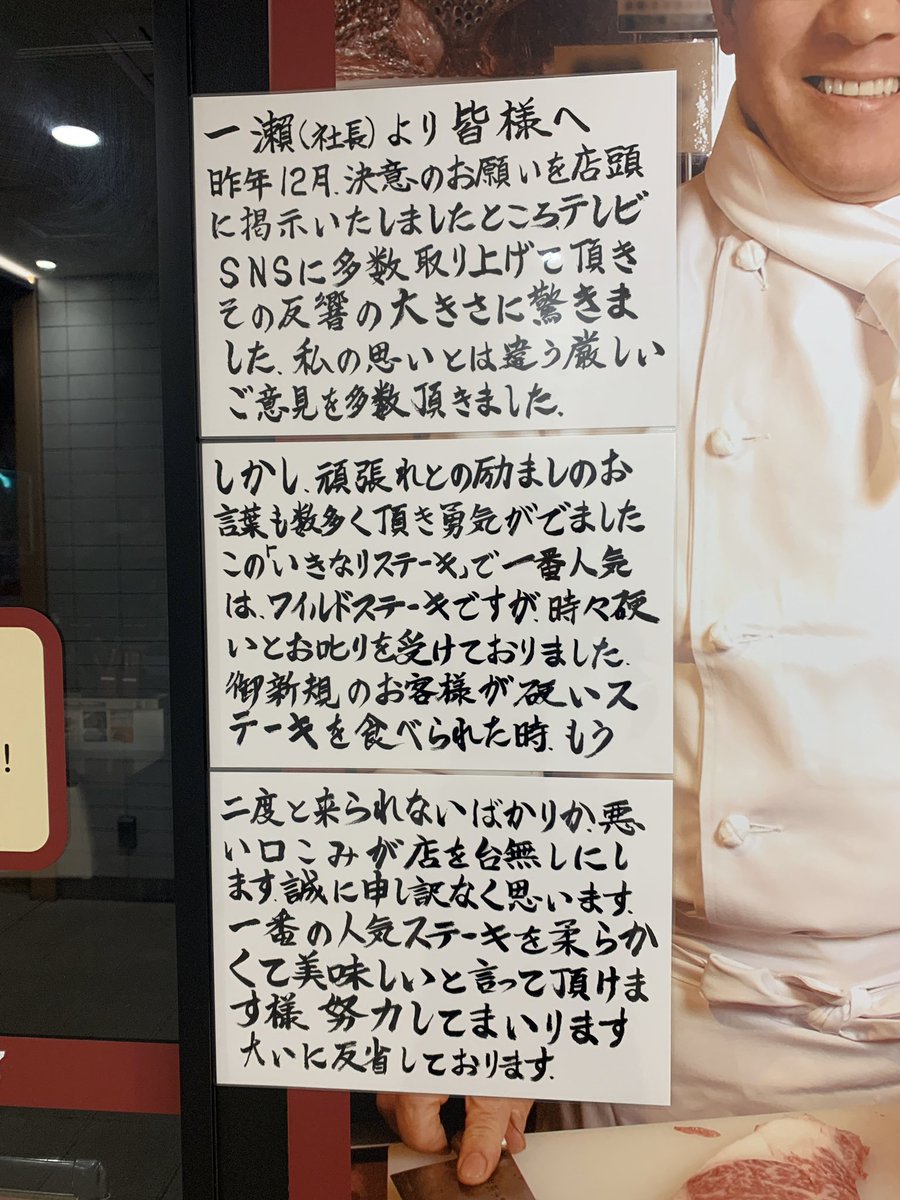 一瀬(社長)より皆様へ
昨年12月、決意のお願いを店頭
に掲示いたしましたところ、テレビ
SNSに多数取り上げて頂き
その反響の大きさに驚きま
した、私の思いとは違う厳しい
ご意見を多数頂きました、
しかし、頑張れとの励ましのお
言葉も数多く頂き勇気がでました
この「いきなりステーキ」で一番人気
は、ワイルドステーキですが、時々硬
いとお叱りを受けておりました、
御新規のお客様が硬いス
テーキを食べられた時、もう
二度と来られないばかりか、悪
い口こみが店を台無しにし
ます、誠に申し訳なく思います、
一番の人気ステーキを柔らか
くて美味しいと言って頂けま
す様 努力してまいります
大いに反省しております、
!